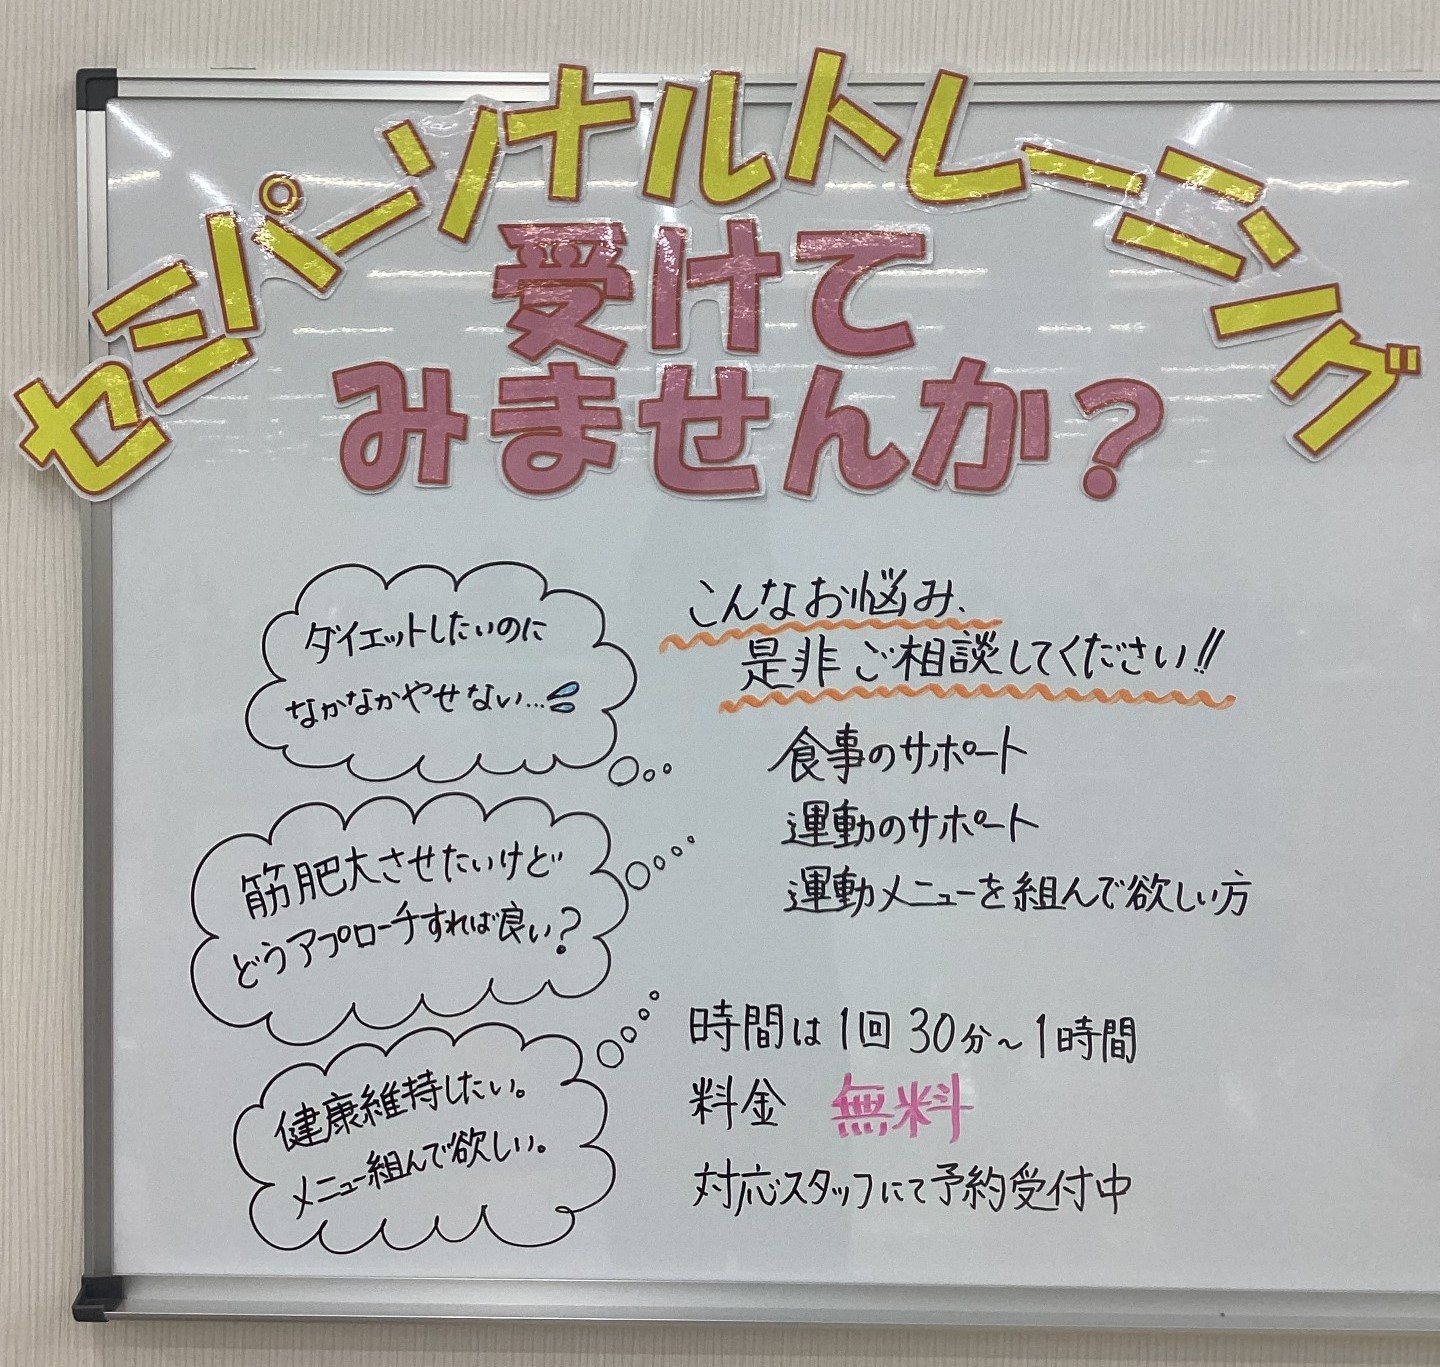 セミパーソナルトレーニング
受けて
みませんか?
ダイエットしたいのに
なかなかやせない...
筋肥大させたいけど
どうアプローチすれば良い?
健康維持したい。
メニュー組んで欲しい。
こんなお悩み、
是非ご相談してください!!
食事のサポート
運動のサポート
運動メニューを組んで欲しい方
時間は1回30分~1時間
料金 無料
対応スタッフにて予約受付中